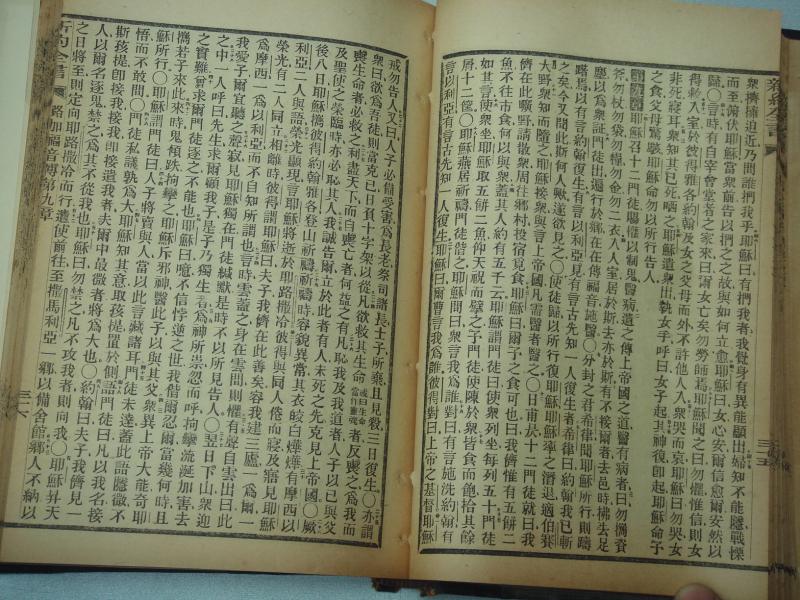 衆擠擁迫近乃問誰捫我乎耶穌曰有捫我者我覺身有異能顯出婦知不能隱戰慄
而至俯伏耶穌當衆前告以捫之之故與如何立愈耶穌曰女心安爾信愈爾安然以
歸〇言時有自宰會堂者之家來曰爾女亡矣勿勞師焉耶穌聞之曰勿懼惟信則女
得救入室於彼得雅各約翰及女之父母而外不許他人入衆哭而哀耶穌曰勿哭女
非死寐耳衆知其已死哂之耶穌遣衆出執女手呼曰女子起其神復卽起耶穌命予
之食父母驚駭耶穌命勿以所行告人
耶穌召十二門徒賜權以制鬼醫病遣之傳上帝國之道醫有病者曰勿攜資
斧勿杖勿袋勿糧勿金勿二衣入人室居於斯去亦於斯有不接爾者去邑時拂去足
塵以爲衆証門徒出遍行於鄉在在傳福音施醫〇分封之君希律聞耶穌所行則躊
躇焉以有言約翰復生有言以利亞見有言古先知一人復生者希律曰約翰我已斬
之矣今又聞此斯何人歟遂欲見之〇使徒歸以所行復耶穌耶穌率之潛退適伯賽
大野衆知而隨之耶穌接衆與言上帝國凡需醫者醫之〇日甫昃十二門徒就曰我
儕在此曠野請散衆周往鄉村投宿覓食耶穌曰爾予之食可也曰我儕惟有五餅二
魚不往市食何以與衆蓋其人約有五千云耶穌謂門徒曰使衆列坐每列五十門徒
如其言使衆坐耶穌取五餅二魚仰天祝而擘之予門徒使陳於衆皆食而飽拾其餘
屑十二筐〇耶穌燕居祈禱門徒偕之耶穌問曰衆言我爲誰對曰有言施洗約翰有
言以利亞有言古先知一人復生耶穌曰爾曹言我爲誰彼得對曰上帝之基督耶穌
戒勿告人又曰人子必備受害爲長老祭司諸長士子所棄且見殺三日復生〇亦謂
衆曰欲爲吾徒則當克己日負十字架以從凡欲救其生命者反喪之爲我而
喪生命者必救之利盡天下而自喪亡者何益之有凡恥我及我道者人子以己與父
及聖使之榮臨時亦必恥其人我誠告爾立於此者有人未死之先克見上帝國〇厥
後八日耶穌攜彼得約翰雅各登山祈禱祈禱時容貌異常其衣皎白燁燁有摩西以
利亞二人與語榮光顯現言耶穌將逝於耶路撒冷彼得與同人倦而寢及寤見耶穌
榮光有二人同立相離時彼得謂耶穌曰夫子我儕在此善矣容我建三廬一爲爾一
爲摩西一爲以利亞而不自知所謂也言時雲蓋之身在雲間則懼有聲自雲出曰此
我愛子爾宜聽之聲寂見耶穌獨在門徒緘默是時不以所見告人〇翌日下山衆迎
之中一人呼曰先生求爾顧我子是子乃獨生者爲神所祟忽而呼拘攣流涎加害去
之實難曾求爾門徒逐之不能也耶穌曰噫不信悖逆之世我偕爾忍爾當幾何時且
攜若子來此來時鬼傾跌拘攣之耶穌斥邪神醫此子以與其父衆異上帝大能奇耶
穌所行〇耶穌謂門徒曰人子將賣與人當以此言藏諸耳門徒未達蓋此語隱微不
悟而不敢問〇門徒私議孰爲大耶穌知其意取孩提置於側語門徒曰凡以我名接
斯孩提卽接我接我卽接遣我者夫爾中最微者將爲大也〇約翰曰夫子我儕見一
人以爾名逐鬼禁之爲其不從我也耶穌曰勿禁之凡不攻我者則向我〇耶穌升天
之日將至則定向耶路撒冷而行遣使前往至撒馬利亞一鄉以備舍館鄉人不納以
新約全書 路加福音傳第九章 三六